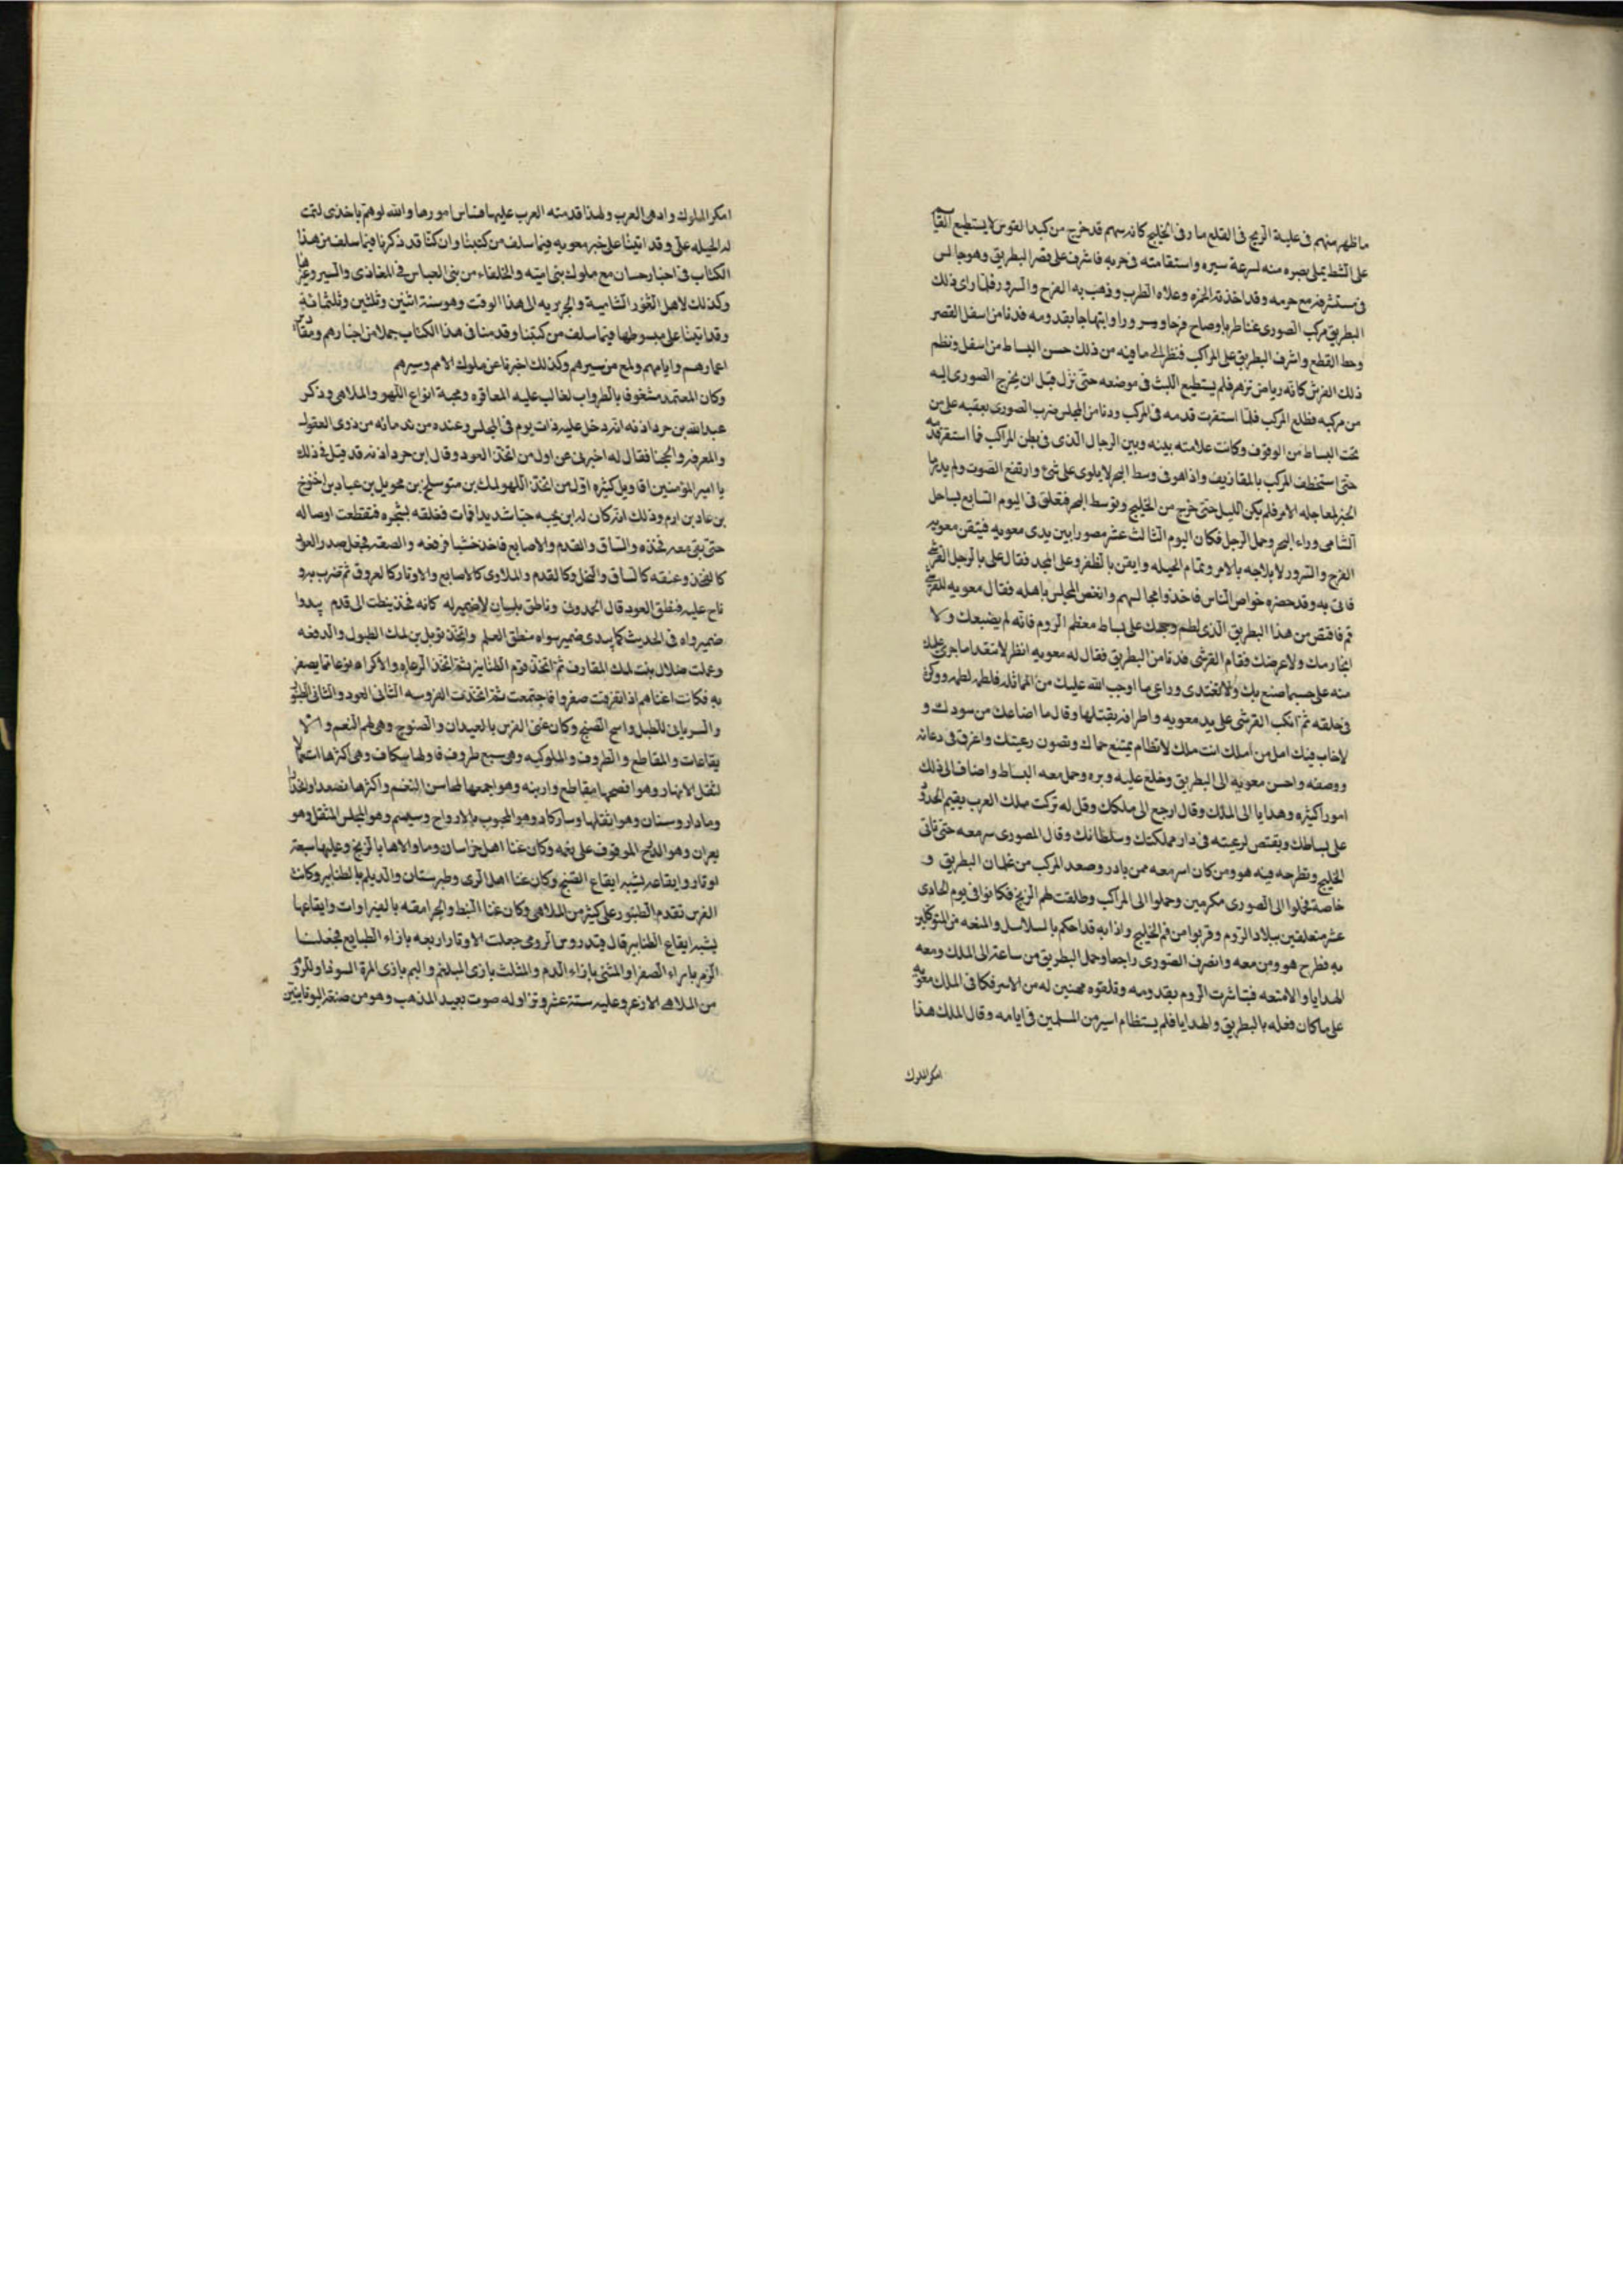 ما ظهر منهم فى علبة الريح فى القلع مار فى الخليج كانه سهم قد خرج من كبد القوس لا يستطيع القا
على الشط يملى بصره منه لسرعة سيره واستقامته فى جريه فاشرف على قصر البطريق وهو جالس
فى مستشرفه مع حرمه وقد اخذته الخمره وعلاه الطرب وذهب به الفرح والسرور فلما راى ذلك
البطريق مركب الصورى غنا طربا وصاح فرحا وسرورا وابتهاجا بقدومه فدنا من اسفل القصر
وحط القطع واشرف البطريق على المراكب فنظر الى ما فيه من ذلك حسن البساط من اسفل ونظم
ذلك الفرش كانه رياض تزهر فلم يستطيع اللبث فى موضعه حتى نزل قبل ان يخرج الصورى اليه
من مركبه فطلع المركب فلما استقرت قدمه فى المركب ودنا من المجلس ضرب الصورى بعقبه على من
تحت البساط من الوقوف وكانت علامته بينه وبين الرجال الذى فى بطن المراكب فما استقر قدمه
حتى استخطف المركب بالمقاذيف واذا هو فى وسط البحر لا يلوى على شئ وارتفع الصوت ولم يدر ما
الخبر لمعاجله الامر فلم يكن الليل حتى خرج من الخليج وتوسط البحر فتعلق فى اليوم السابع بساحل
الشامى وراء البحر وحمل الرجل فكان اليوم الثالث عشر مصورا بين يدى معويه فيتقن معويه
الفرج والسرور لابلاجه بالامر وتمام الحيله وايقن بالظفر وعلى المجد فقال على بالرجل القرشى
فاتى به وقد حضره خواص الناس فاخذوا مجالسهم وانغص المجلس باهله فقال معويه للقرشى
قم فاقتص من هذا البطريق الذى لطم وجهك على بساط معظم الروم فانه لم يضيعك ولا
ابحا دمك ولا عرضك فقام القرشى فدنا من البطريق فقال له معويه انظر لا تتعدا ما جرى عليك
منه على حسب ما صنع بك ولا تعتدى وراعى ما اوجب الله عليك من المماثله فلطمه لطمه ووكز
فى حلقه ثم انكب القرشى على يد معويه واطرافه يقبلها وقال ما اضاعك من سودك و
لا خاب فيك امل من املك انت ملك لا تظام يمتنع حماك وتصون رعيتك واغرق فى دعائه
ووصفه واحسن معويه الى البطريق وخلع عليه وبره وحمل معه البساط واضاف الى ذلك
امورا كثيره وهدايا الى الملك وقال ارجع الى ملكك وقل له تركت ملك العرب يقيم الحدود
على بساطك ويقتص لرعيته فى دار مملكتك وسلطانك وقال للصورى سر معه حتى تاتى
الخليج وتطرحه فيه هو ومن كان اسر معه ممن بادر وصعد المركب من غلمان البطريق و
خاصة فحملوا الى الصورى مكرمين وحملوا الى المراكب وطالقت لهم الريح فكانوا فى يوم الحادى
عشر متعلقين ببلاد الروم وقربوا من فم الخليج واذا به قد احكم بالسلاسل والمنعه من المتوكلين
به فطرح هو ومن معه وانصرف الصورى راجعا وحمل البطريق من ساعة الى الملك ومعه
الهدايا والامتعه فتباشرت الروم بقدومه وتلقوه مهنين له من الاسر فكافى الملك معويه
على ما كان فعله بالبطريق والهدايا فلم يستظام اسير من المسلمين فى ايامه وقال الملك هذا
امكر الملوك
امكر الملوك وادهى العرب ولهذا قدمته العرب عليها فساس امورها والله لو هم باخذى لتمت
له الحيله على وقد اتينا على خبر معويه فيما سلف من كتبنا وان كنا قد ذكرنا فيما سلف من هذا
الكتاب فى اخبار حسان مع ملوك بنى اميه والخلفاء من بنى العباس فى المغازى والسير وغيرها
وكذلك لاهل الثغور الشاميه والجزريه الى هذا الوقت وهو سنة اثنين وثلثين وثلثمائة
وقد اتينا على مبسوطها فيما سلف من كتبنا وقدمنا فى هذا الكتاب جملا من اخبارهم ومقادير
اعمارهم وايامهم ولمع من سيرهم وكذلك اخبرنا عن ملوك الامم وسيرهم
وكان المعتمد مشغوفا بالطرب الغالب عليه المعاقره ومحبة انواع اللهو والملاهى وذكر
عبدالله بن خرداذنه انه دخل عليه ذات يوم فى المجلس وعنده من ندمائه من ذوى العقول
والمعرفه والحجنا فقال له اخبرنى عن اول من اتخذ العود وقال ابن خرداذنه قد قيل فى ذلك
يا امير المؤمنين اقاويل كثيره اول من اتخذ اللهو لمك بن متوسلح بن محويل بن عياد بن اخنوخ
بن عاد بن ادم وذلك انه كان له ابن يحبه حبا شديدا فمات فعلقه بشجره فتقطعت اوصاله
حتى بقى معه فخذه والساق والقدم والاصابع فاخذ خشبا فرقعه والصقه فجعل صدر العود
كالفخذ وعنقه كالساق والنخل وكالقدم والملاوى كالاصابع والاوتار كالعروق ثم ضرب به و
ناح عليه فنطق العود قال الحمدونى وناطق بلسان لا ضمير له كانه فخذ نيطت الى قدم يبدوا
ضمير سواه فى الحديث كما يبدى ضمير سواه منطق العلم واتخذ توبل بن لمك الطبول والدفعه
وعملت ضلال بنت لمك المعازف ثم اتخذ قوم الطنابير ثم اتخذ الرعاه والاكراد نوعا مما يصفر
به فكانت اغنامهم اذا تفرقت صفروا فاجتمعت ثم اتخذت الفروسه الثانى العود والثانى الطنبور
والسريانى للطبل واسح الصنج وكان غنى الفرس بالعيدان والصنوج وهى لهم النغم والا
يقاعات والمقاطع والطروف والملوكيه وهى سبع طروف فاولها سكاف وهى اكثرها استعمالا
لثقل الانهار وهو افصحها مقاطع واربنه وهو اجمعها لمحاسن النغم واكثرها تصعدا وانحدارا
وماداروسنان وهو اثقلها وساركاد وهو المحبوب بالارواح وسيسم وهو المجلس المثقل وهو
يعران وهو الدرج الموقوف على نغمه وكان غنا اهل خراسان وما والاها بالزنج وعليها سبعة
اوتار وايقاعه يشبه ايقاع الصنج وكان غنا اهل الرى وطبرستان والديلم بالطنابير وكانت
الفرس تقدم الطنبور على كثير من الملاهى وكان غنا النبط والجرامقه بالغيراوات وايقاعها
يشبه ايقاع الطنابير قال فيدروس الرومى جعلت الاوتار اربعه بازاء الطبايع فجعلنا
الزير بازاء الصفرا والمثنى بازاء الدم والمثلث بازى البلغم والبم بازى المرة السودا وللروم
من الملاهى الارغر وعليه ستة عشر وترا وله صوت بعيد المذهب وهو من صنعة اليونانيين